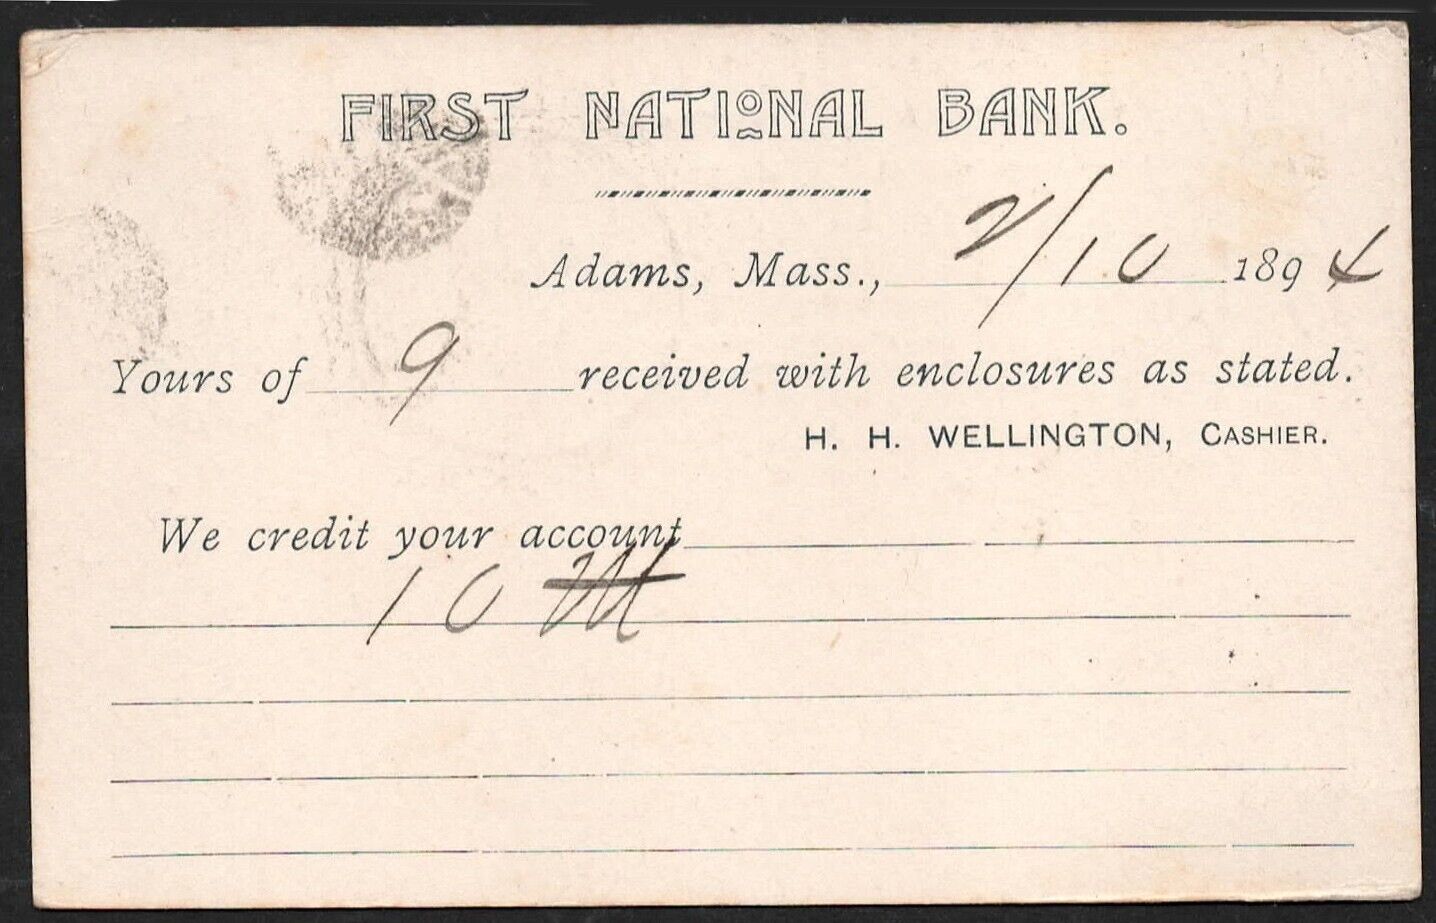 FIRST NATIONAL BANK.
Adams, Mass., 2/10 1894
Yours of 9 received with enclosures as stated.
H. H. WELLINGTON, CASHIER.
We credit your account
10